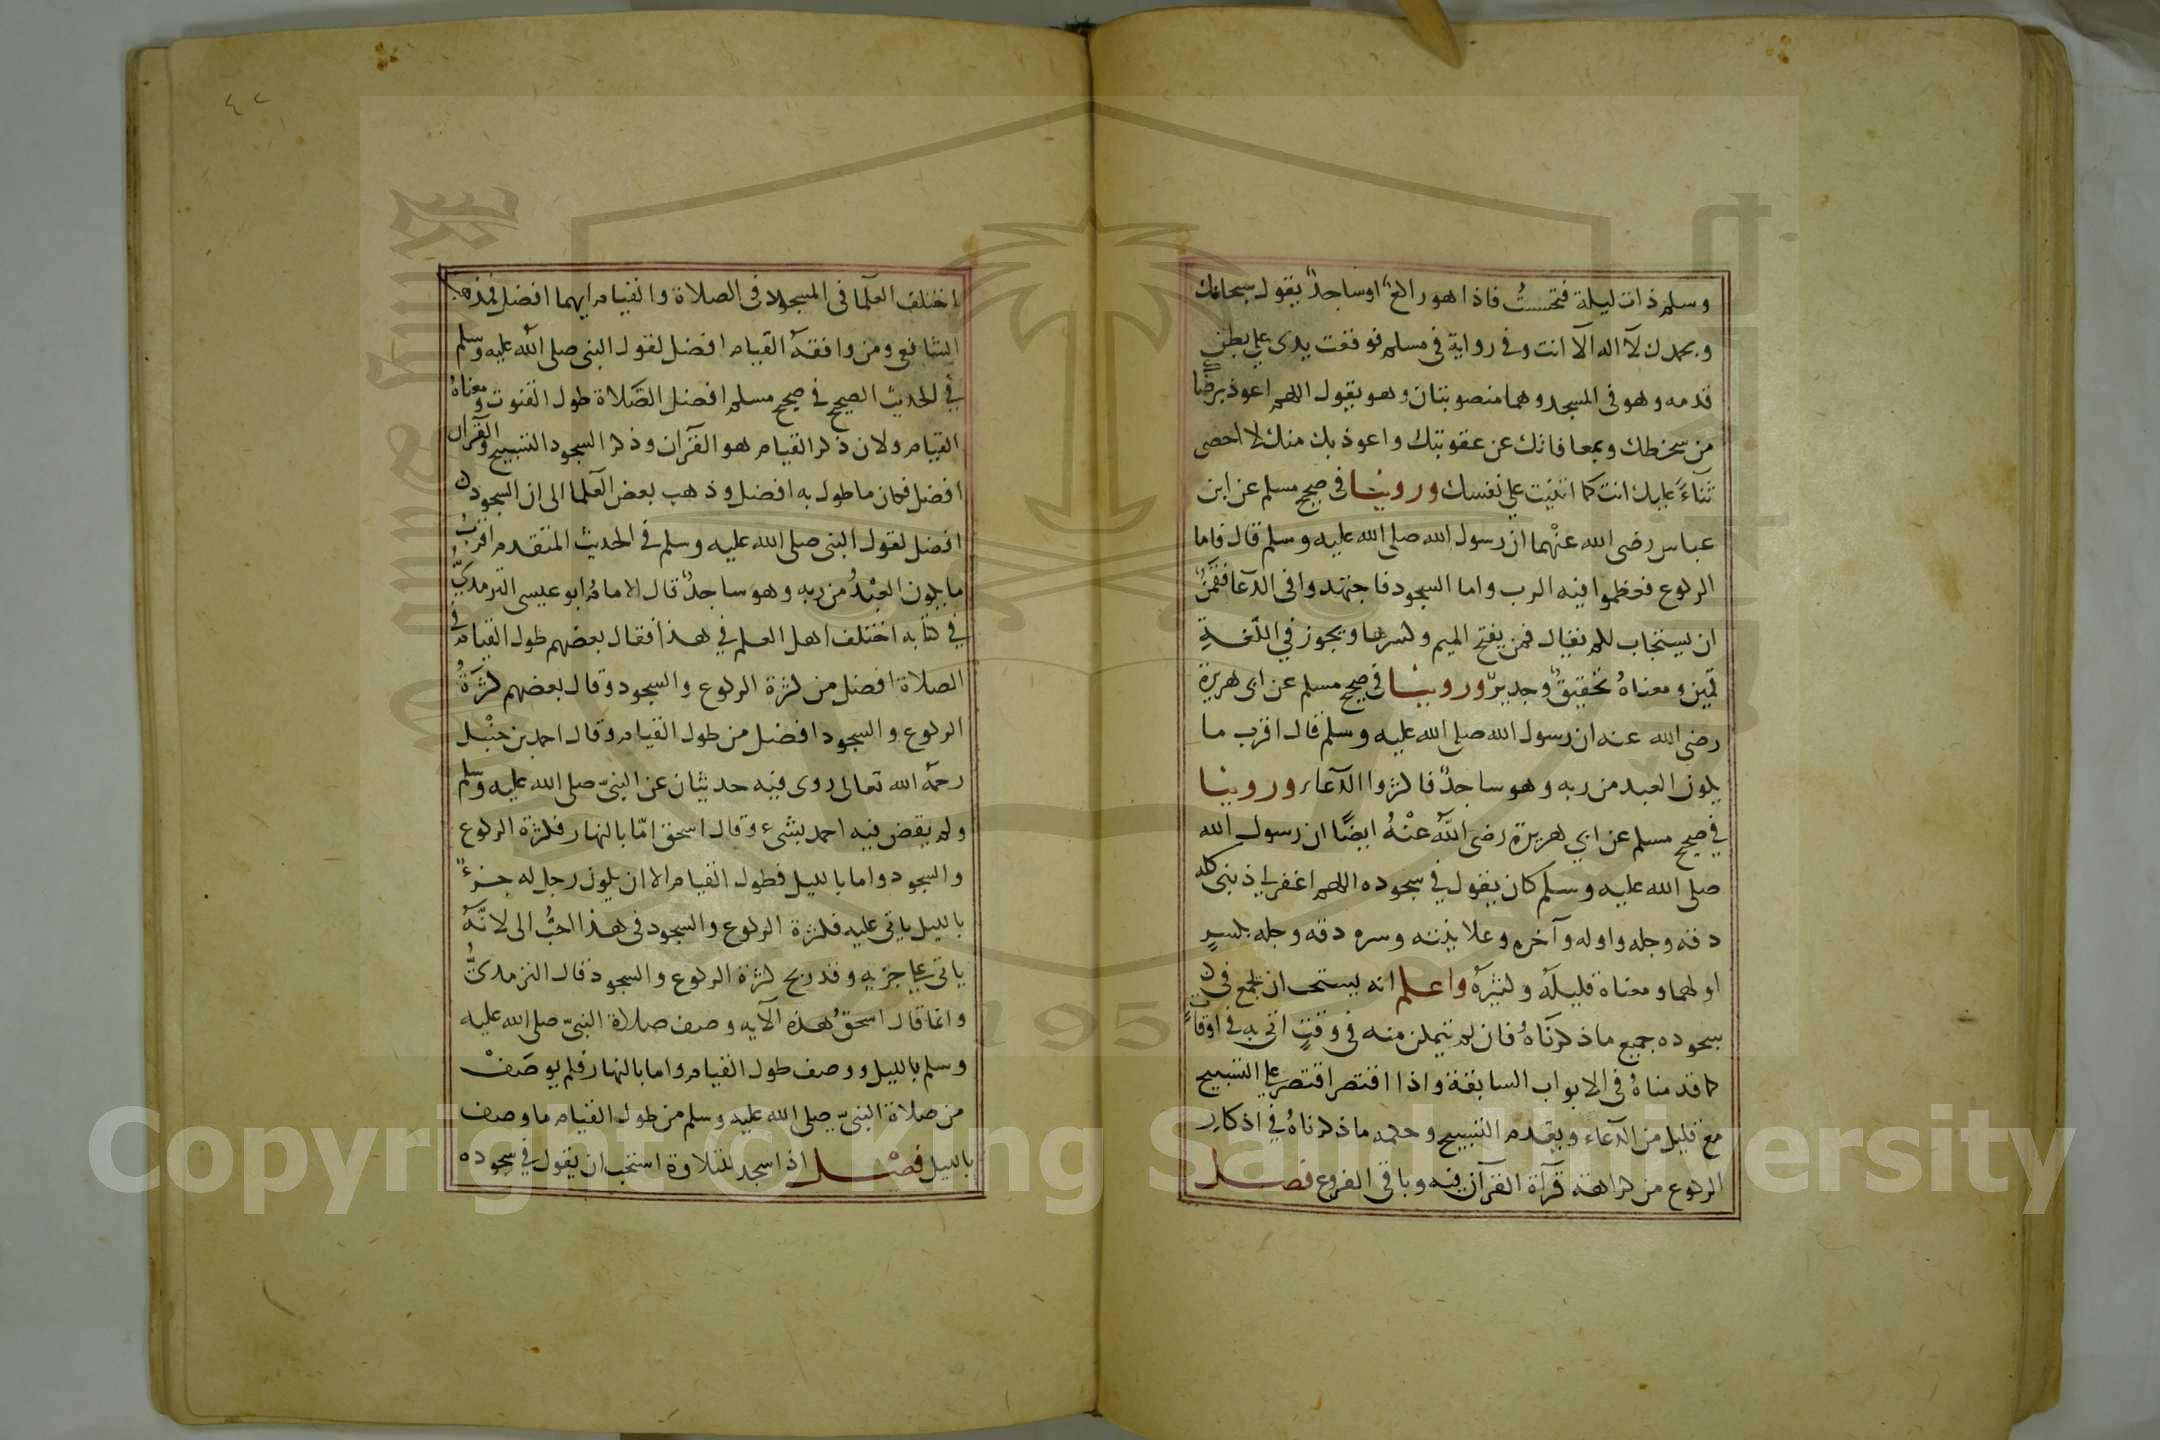 وسلم ذات ليلة فتحسستُ فاذا هو راكع او ساجدٌ يقول سبحانك
وبحمدك لآ اله الآ انت وفى رواية فى مسلم فوقعت يدى على بطن
قدمه وهو فى المسجد وهما منصوبتان وهو يقول اللهم اعوذ برضاك
من سخطك وبمعافاتك عن عقوبتك واعوذ بك منك لا احصى
ثنآءً عليك انت كما اثنيت على نفسك وروينا فى صحيح مسلم عن ابن
عباس رضى الله عنْهما ان رسول الله صلى الله عليه وسلم قال فاما
الركوع فعظموا فيه الرب واما السجود فاجتهدوا فى الدعآ فقَمَنٌ
ان يستجاب لكم يقال قمن بفتح الميم وكسرها ويجوز في اللّغة
قمين ومعناهُ تحقيقٌ وجديرٌ وروينا فى صحيح مسلم عن ابى هريرة
رضى الله عنه ان رسول الله صلى الله عليه وسلم قال اقرب ما
يكون العبد من ربه وهو ساجدٌ فاكثروا الدعآء وروينا
في صحيح مسلم عن ابي هريرة رضى اللّهُ عنْهُ ايضًا ان رسول الله
صلى الله عليه وسلم كان يقول في سجوده اللهم اغفر لي ذنبى كله
دقه وجله واوله وآخره وعلانيته وسره دقه وجله بكسرٍ
اولهما ومعناه قليلهُ وكثيرهُ واعلم انه يستحب ان يجمع في
سجوده جميع ما ذكرناهُ فان لم يتمكن منه فى وقتٍ اتى به فى اوقاتٍ
كما قدمناهُ فى الابواب السابقة واذا اقتصر اقتصر على التسبيح
مع قليل من الدعآء ويقدم التسبيح وحكمه ما ذكرناهُ في اذكار
الركوع من كراهة قرآة القرآن فيه وباقى الفروع فصل
٤٢
اختلف العلمآ فى السجود فى الصلاة والقيام ايهما افضل فمذهب
الشافعى ومن وافقهُ القيام افضل لقول النبى صلى الله عليه وسلم
في الحديث الصحيح في صحيح مسلم افضل الصَّلاة طول القنوت ومعناهُ
القيام ولان ذكر القيام هو القرآن وذكر السجود التسبيح والقرآن
افضل فكان ما طول به افضل وذهب بعض العلمآ الى ان السجود
افضل لقول النبى صلى الله عليه وسلم فى الحديث المتقدم اقربُ
ما يكون العَبْدُ من ربه وهو ساجدٌ قال الامامُ ابو عيسى الترمذىّ
في كتابه اختلف اهل العلم في هذا فقال بعضهم طول القيام فى
الصلاة افضل من كثرة الركوع والسجود وقال بعضهم كثرَةُ
الركوع والسجود افضل من طول القيام وقال احمد بن حنْبل
رحمهُ الله تعالى روى فيه حديثان عن النبىّ صلى الله عليه وسلم
ولم يقض فيه احمد بشىء وقال اسحق امّا بالنهار فكثرة الركوع
والسجود واما بالليل فطول القيام الا ان يكون رجل له جزءٌ
بالليل ياتى عليه فكثرة الركوع والسجود فى هذا احبُّ الى لانّهُ
ياتى على جزيه وقد ربح كثرة الركوع والسجود قال الترمذىُّ
وانما قال اسحقُ هذه الآيه وصف صلاة النبىّ صلى الله عليه
وسلم بالليل ووصف طول القيام واما بالنهار فلم يوصَفْ
من صلاة النبىّ صلى الله عليه وسلم من طول القيام ما وصف
بالليل فصْل اذا سجد للتلاوة استحب ان يقول في سجوده
Copyright © King Saud University